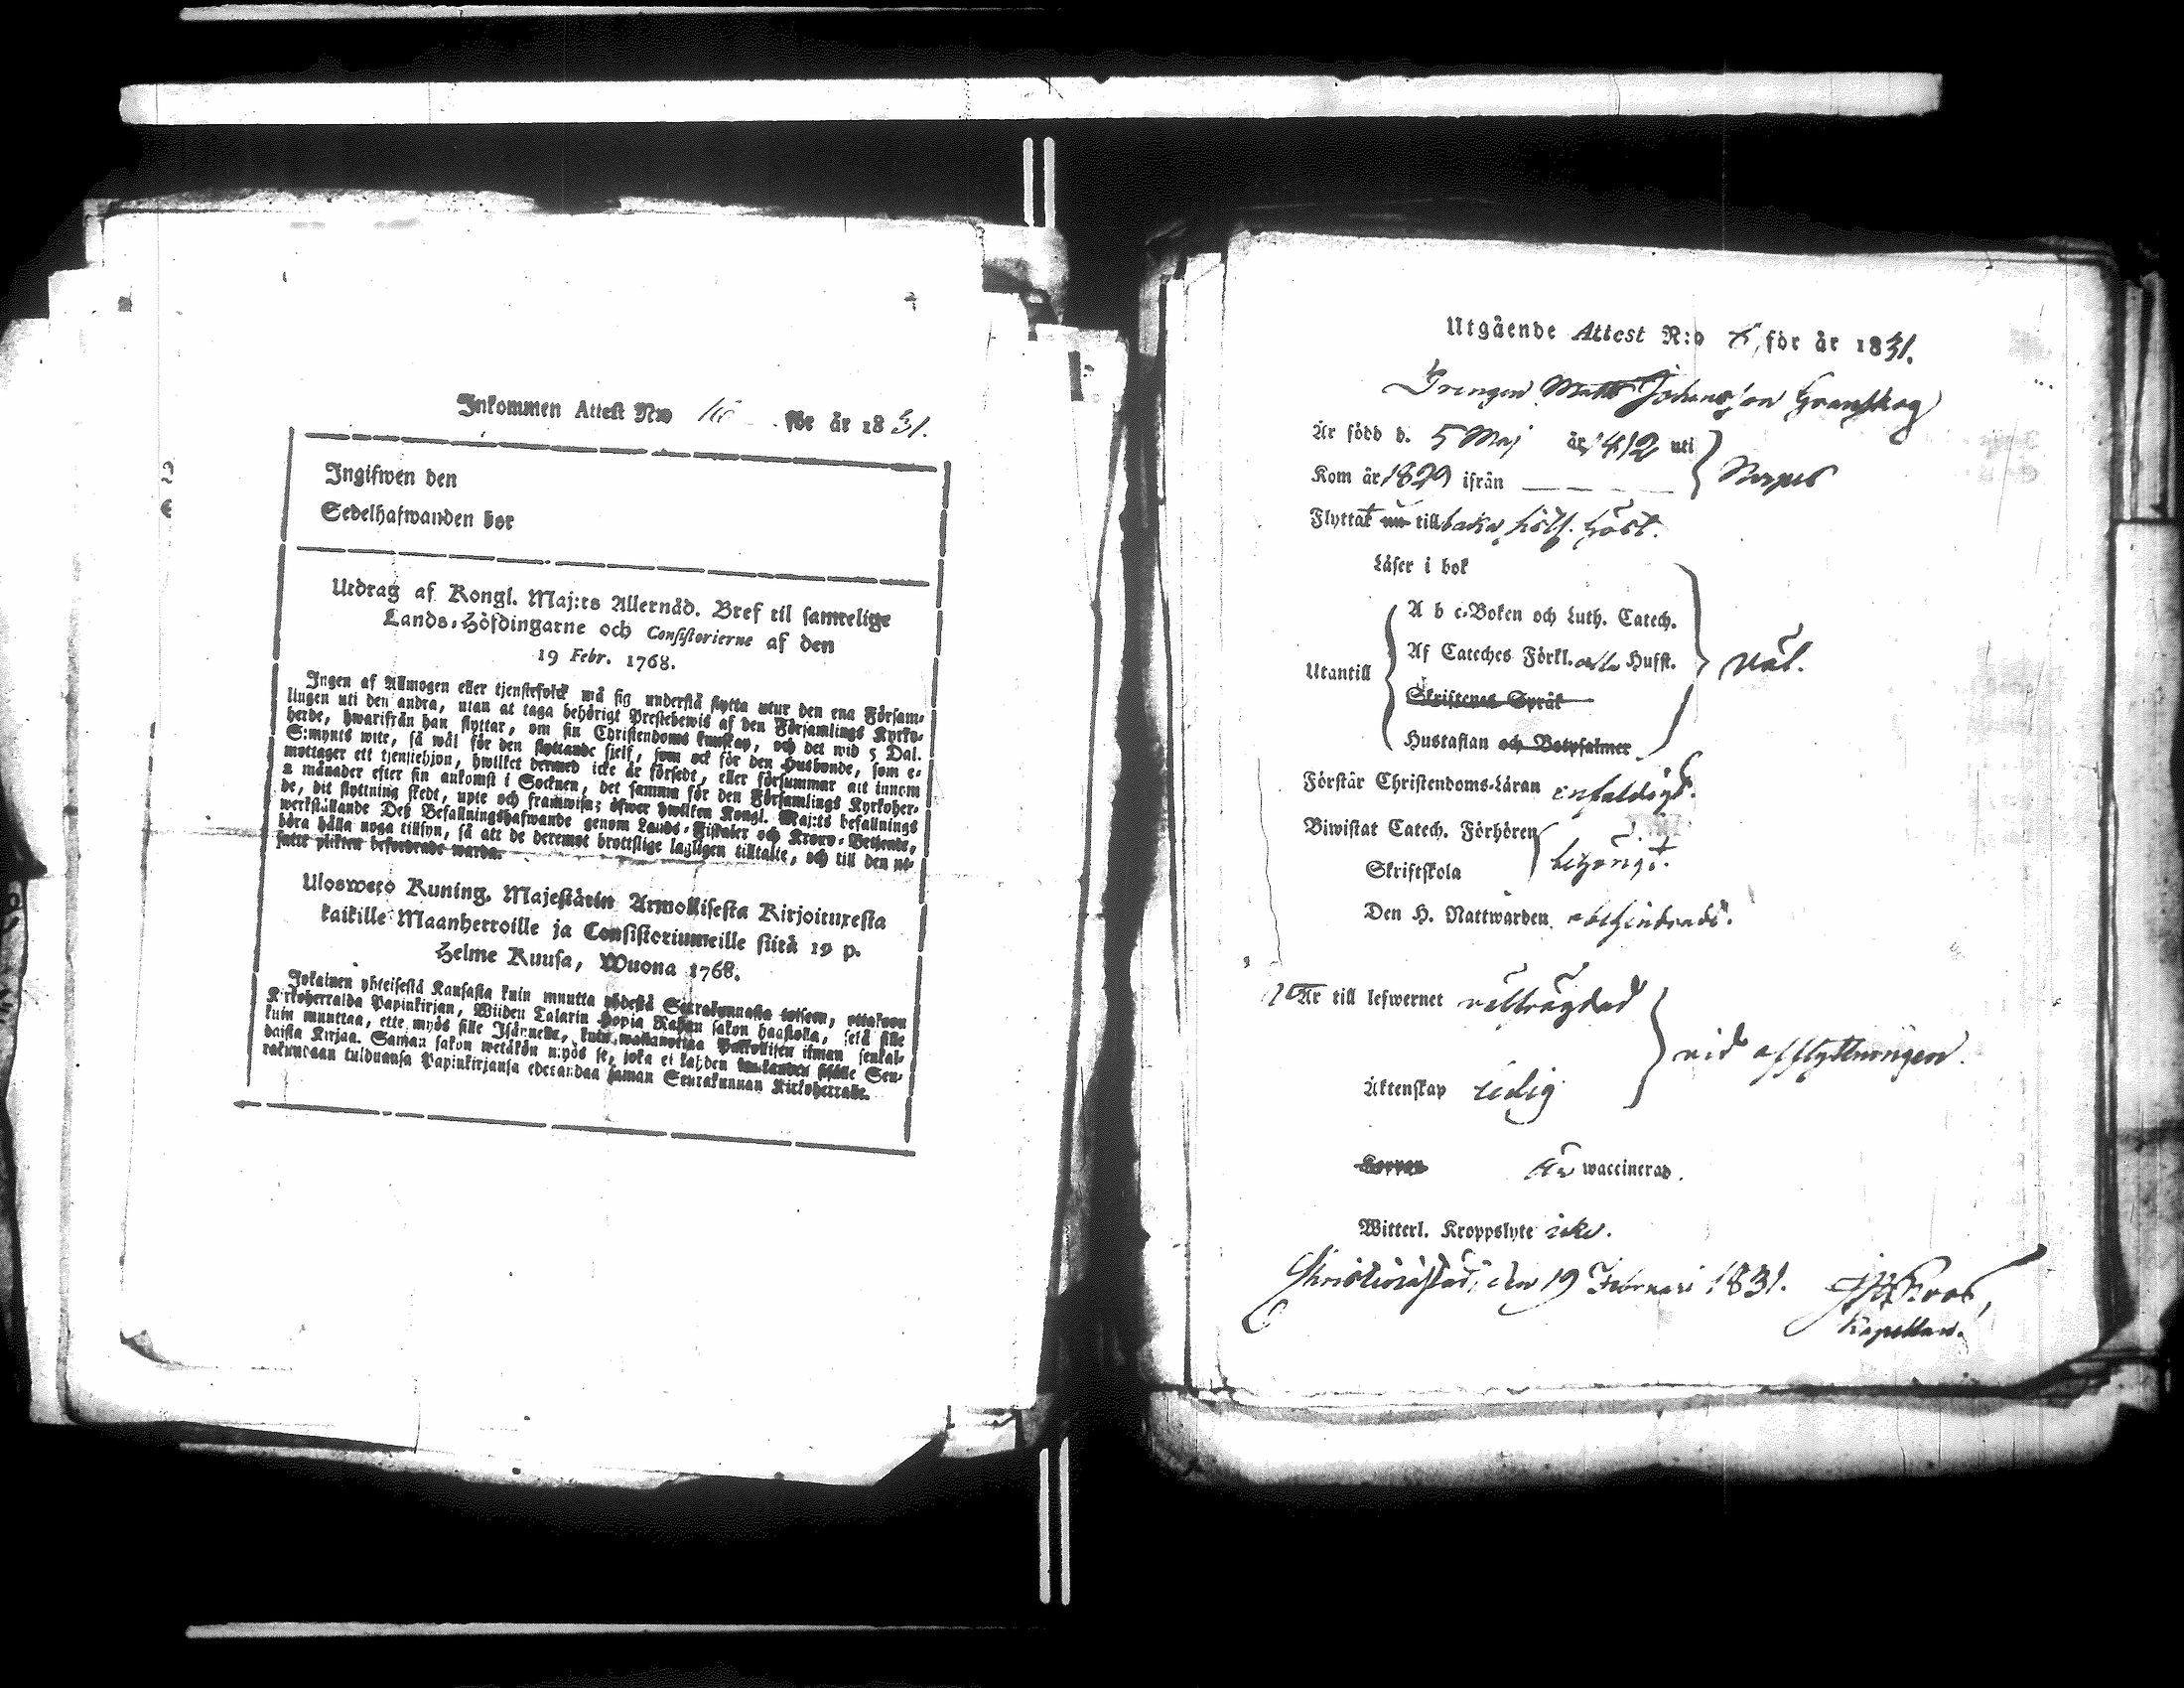 Inkommen Attest N:o för år 1831.
Ingifwen den
Sedelhafwanden bor
Utdrag af Kongl. Maj:ts Allernåd. Bref til samtelige
Lands-Höfdingarne och Consistorierne af den
19 Febr. 1768.
Ingen af Allmogen eller tjenstefolck må sig understå flytta utur den ena Försam-
lingen uti den andra, utan at taga behörigt Prestebewis af den Församlings Kyrko-
herde, hwarifrån han flyttar, om sin Christendoms kunskap, och det wid 5 Dal.
S:mynts wite, så wäl för den flyttande sjelf, som ock för den Husbonde, som e-
mottager ett tjenstehjon, hwilket dermed icke är försedt, eller försummar att innom
2 månader efter sin ankomst i Socknen, det samma för den Församlings Kyrkoher-
de, dit flyttning skedt, upte och framwisa; öfwer hwilken Kongl. Maj:ts befallnings
werkställande Deß Befallningshafwande genom Lands-Fiskaler och Krono-Betjente,
böra hålla noga tillsyn, så att de deremot brottslige lagligen tilltalte, och till den ut-
satte plikten befordrade warda.
Ulosweto Kuning. Majestätin Armollisesta Kirjoituxesta
kaikille Maanherroille ja Consistoriumeille siitä 19 p.
Helme Kuusa, Wuona 1768.
Jokainen yhteisestä Kansasta kuin muutta yhdestä Seurakunnasta toiseen, ottakoon
Kirkoherralda Papinkirjan, Wiiden Talarin Hopia Rahan sakon haastolla, sekä sille
kuin muuttaa, ette myös sille Isännelle, kuin wastanottaa Palkollisen ilman senkal-
daista Kirjaa. Saman sakon wetäkön myös se, joka ei kahden kuukauden sisälle Seu-
rakundaan tulduansa Papinkirjansa edesandaa saman Seurakunnan Kirkoherralle.
Utgående Attest N:o för år 1831.
Drengen Matts Johansson Granskog
Är född d. 5 Maj år 1812 uti
Kom år 1829 ifrån Nerpes
Flyttat nu tillbaka sistl. höst.
Läser i bok
A b c-Boken och Luth. Catech.
Af Cateches Förkl. alla Hufst.
Utantill
Skriftenes Språk
Hustaflan och Botpsalmer
väl.
Förstår Christendoms-Läran enfaldigt.
Biwistat Catech. Förhören
Skriftskola
behörigt.
Den H. Nattwarden obehindrad.
Är till lefwernet välfrägdad
vid afflyttningen.
Äktenskap ledig
Koppor är waccinerad.
Witterl. Kroppslyte icke.
Christinæstad, den 19 Februari 1831.
Kapellan.